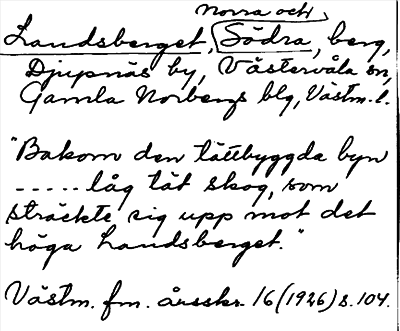 Norra och
Landsberget, Södra, berg,
Djupnäs by, Västervåla sn,
Gamla Norbergs blg, Västm. l.
"Bakom den tättbyggda byn
----- låg tät skog, som
sträckte sig upp mot det
höga Landsberget."
Västm. fm. årsskr. 16 (1926) s. 104.